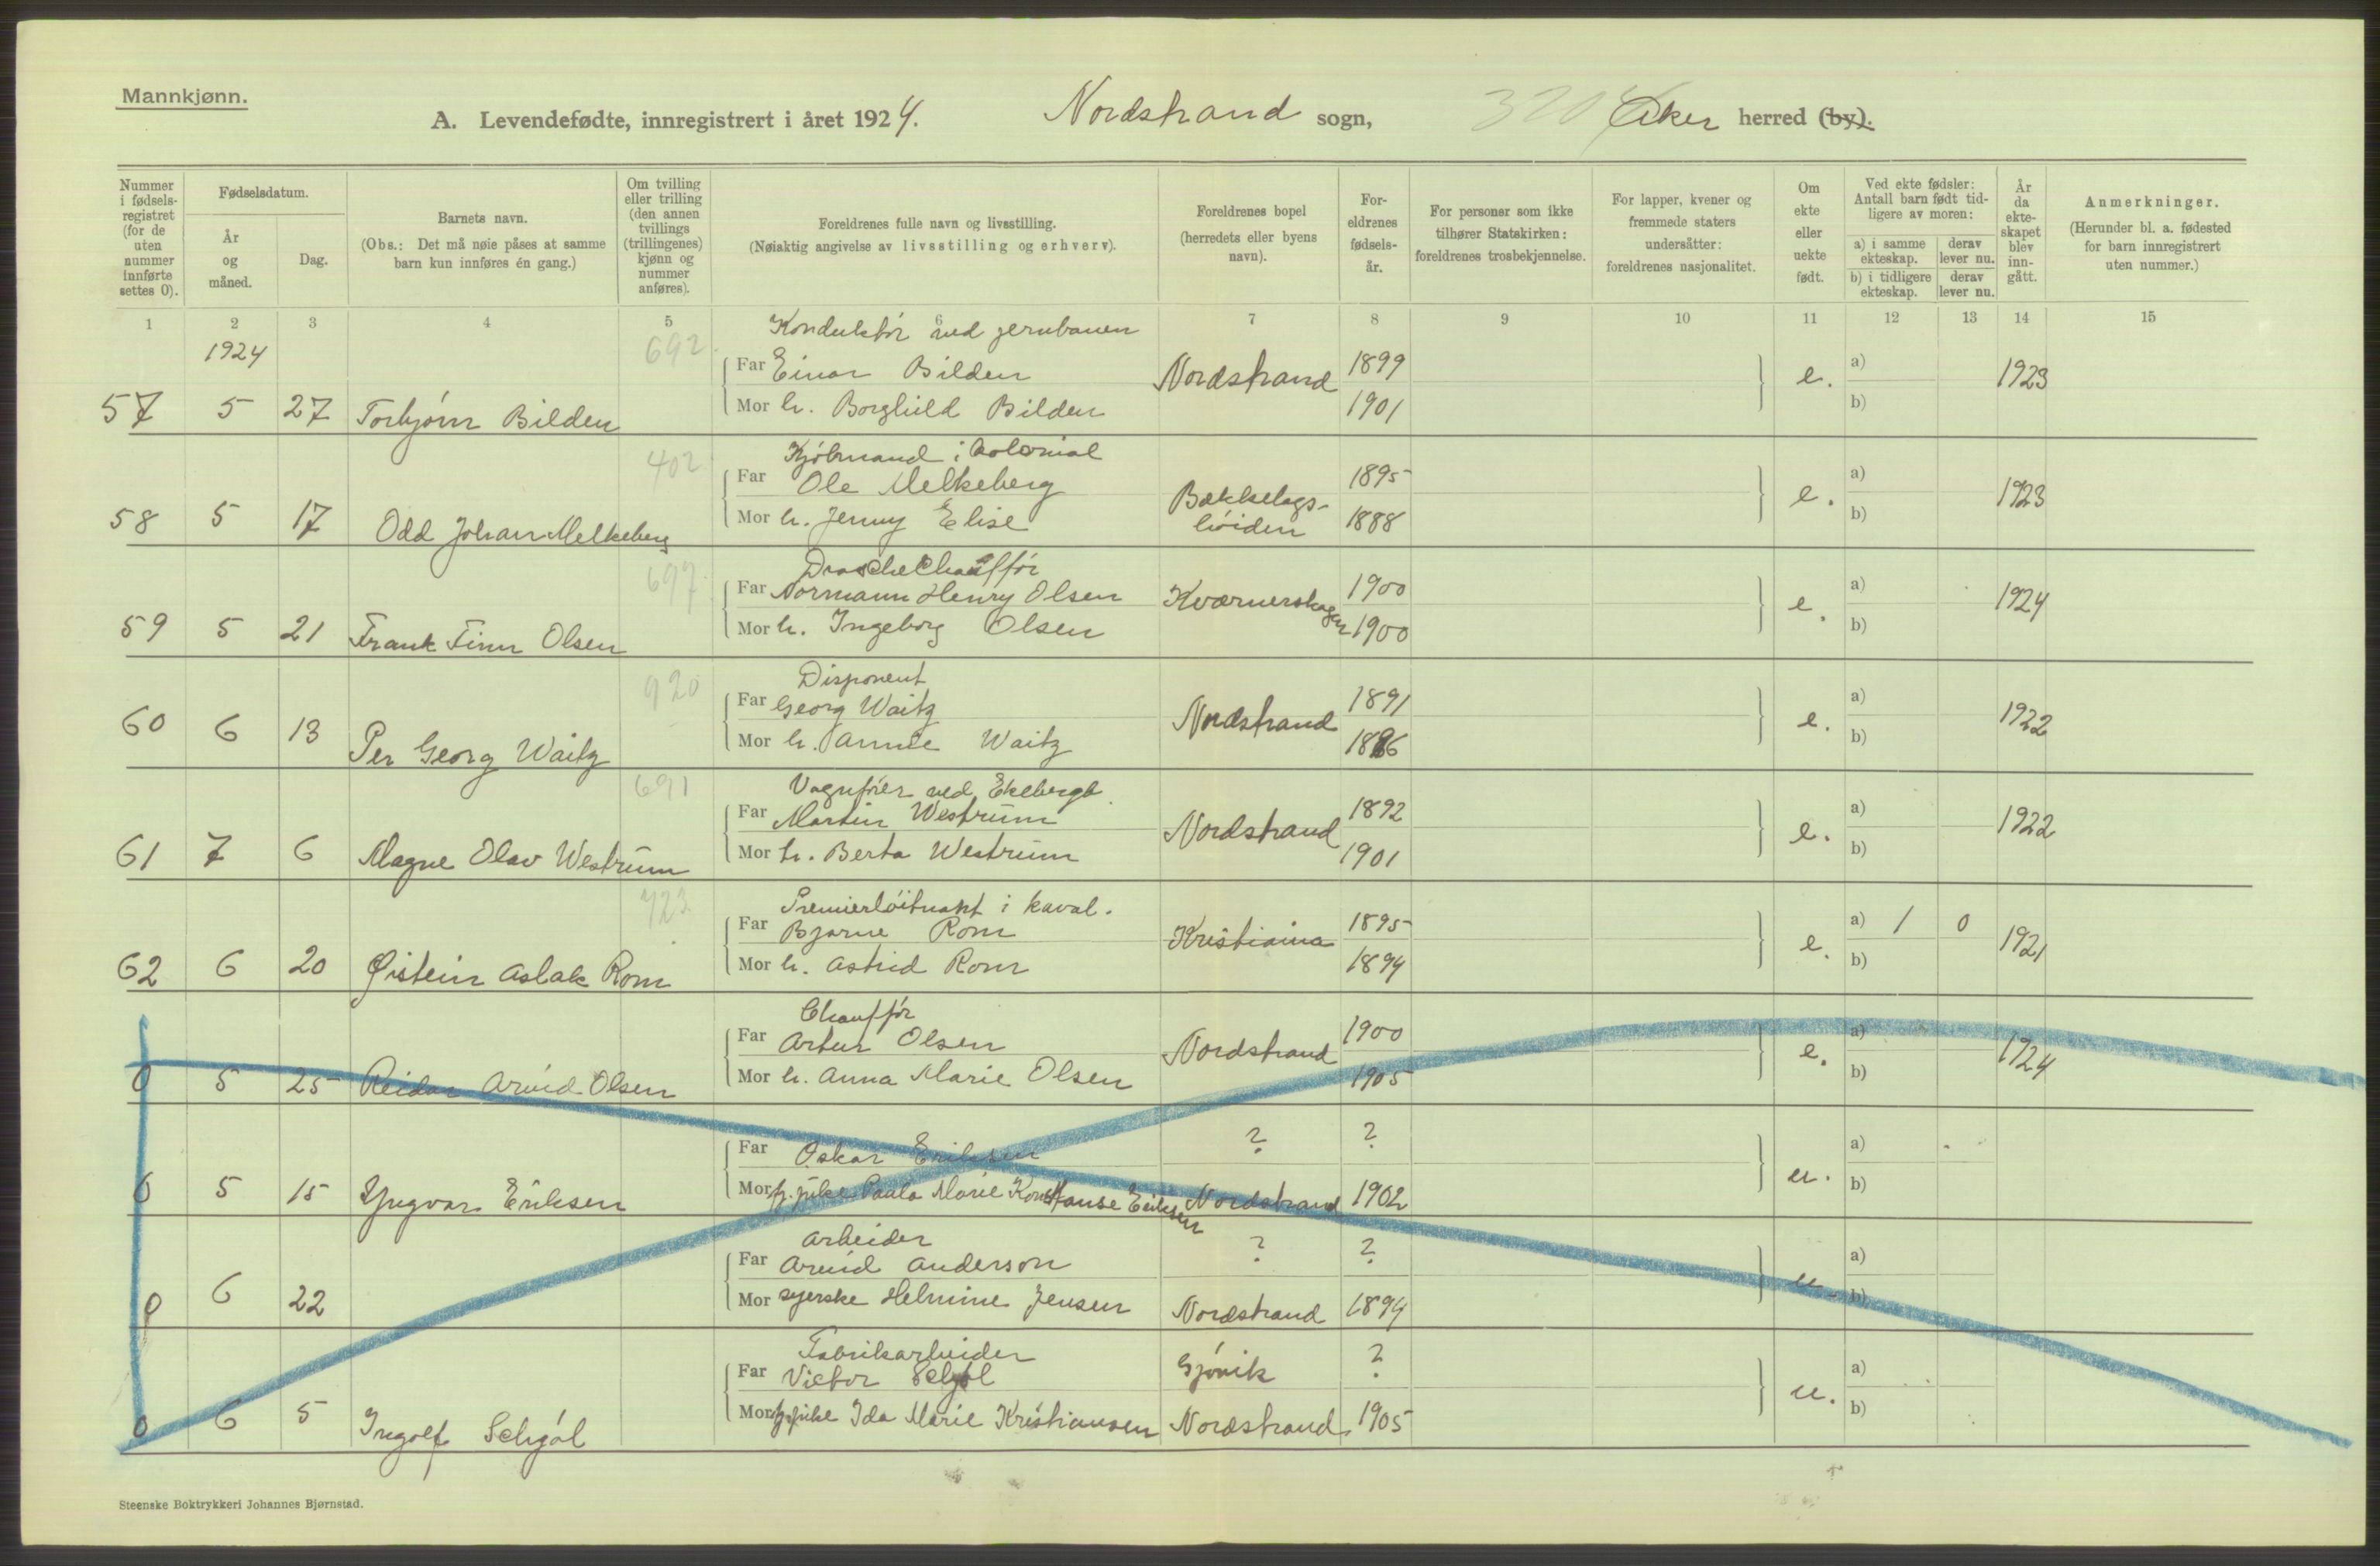 Mannkjønn.
A. Levendefødte, innregistrert i året 1924. Nordstrand sogn, Aker herred (by).
Nummer i fødsels-registret (for de uten nummer innførte settes 0).
Fødselsdatum.
År og måned.
Dag.
Barnets navn.
(Obs.: Det må nøie påses at samme barn kun innføres én gang.)
Om tvilling eller trilling (den annen tvillings (trillingenes) kjønn og nummer anføres).
Foreldrenes fulle navn og livsstilling.
(Nøiaktig angivelse av livsstilling og erhverv).
Foreldrenes bopel (herredets eller byens navn).
For-eldrenes fødsels-år.
For personer som ikke tilhører Statskirken: foreldrenes trosbekjennelse.
For lapper, kvener og fremmede staters undersåtter: foreldrenes nasjonalitet.
Om ekte eller uekte født.
Ved ekte fødsler: Antall barn født tid-ligere av moren:
a) i samme ekteskap. derav lever nu.
b) i tidligere ekteskap. derav lever nu.
År da ekte-skapet blev inn-gått.
Anmerkninger.
(Herunder bl. a. fødested for barn innregistrert uten nummer.)
1 2 3 4 5 6 7 8 9 10 11 12 13 14 15
1924 692 Konduktør ved jernbanen
Far Einar Bilden Nordstrand 1899 e. a) 1923
57 5 27 Torbjørn Bilden Mor h. Borghild Bilden 1901 b)
402 Kjøbmand i Colonial
Far Ole Melkeberg Bækkelags-høiden 1895 e. a) 1923
58 5 17 Odd Johan Melkeberg Mor h. Jenny Elise 1888 b)
697 Droschechauffør
Far Normann Henry Olsen Kværnerskogen 1900 e. a) 1924
59 5 21 Frank Finn Olsen Mor h. Ingeborg Olsen 1900 b)
920 Disponent
Far Georg Waitz Nordstrand 1891 e. a) 1922
60 6 13 Per Georg Waitz Mor h. Annie Waitz b)
691 Vognfører ved Ekebergb.
Far Martin Westrum Nordstrand 1892 e. a) 1922
61 7 6 Magne Olav Westrum Mor h. Berta Westrum 1901 b)
723 Premierløitnant i kaval.
Far Bjarne Rom Kristiania 1895 e. a) 1 0 1921
62 6 20 Øistein Aslak Rom Mor h. Astrid Rom 1894 b)
Chauffør
Far Artur Olsen Nordstrand 1900 e. a) 1924
0 5 25 Reidar Arvid Olsen Mor h. Anna Marie Olsen 1905 b)
Far Oskar Eriksen ? ? u. a)
0 5 15 Yngvar Eriksen Mor tj.pike Paula Marie Konstanse Eriksen Nordstrand 1902 b)
Arbeider
Far Arvid Anderson ? ? u. a)
0 6 22 Mor syerske Helmine Jensen Nordstrand 1894 b)
Fabrikarbeider
Far Victor Gjøvik ? u. a)
0 6 5 Ingolf Mor tj.pike Ida Marie Kristiansen Nordstrand 1905 b)
Steenske Boktrykkeri Johannes Bjørnstad.